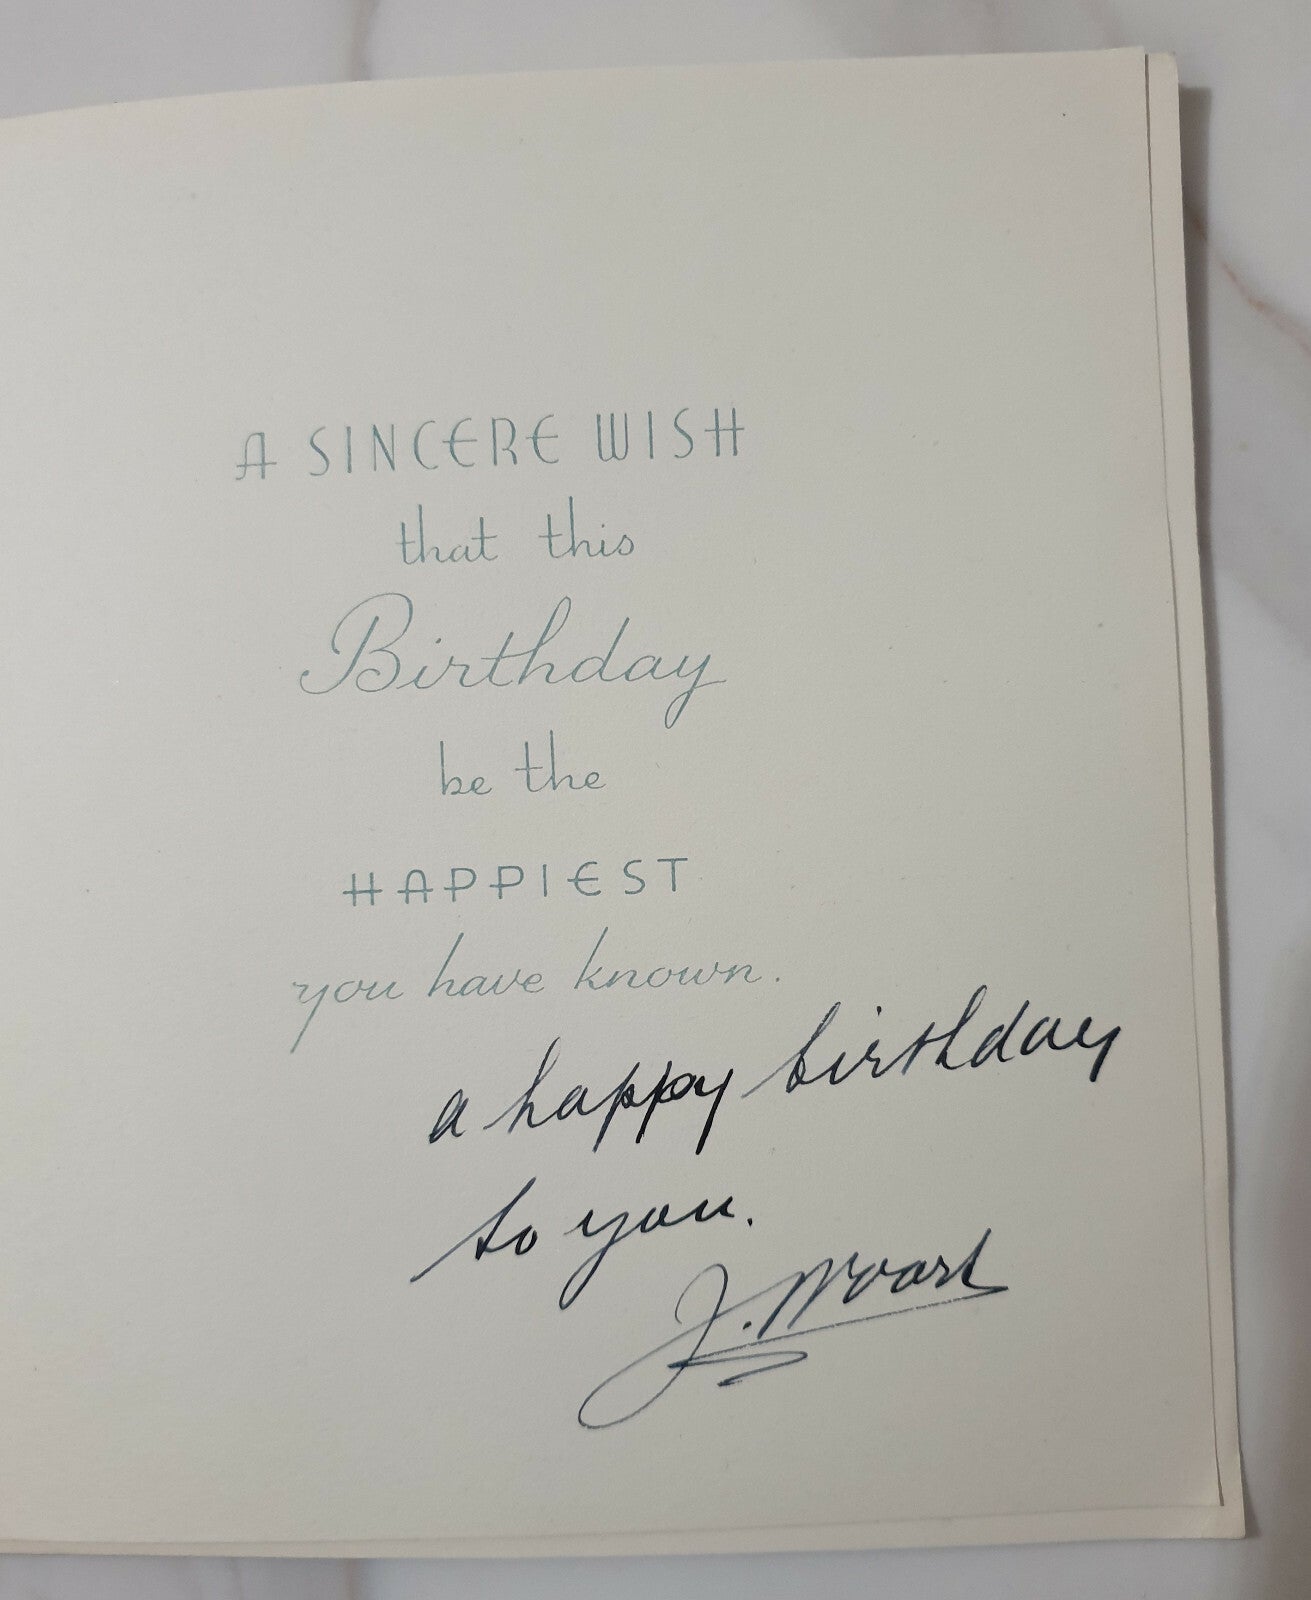 A SINCERE WISH
that this
Birthday
be the
HAPPIEST
you have known.
a happy birthday
to you.
J.